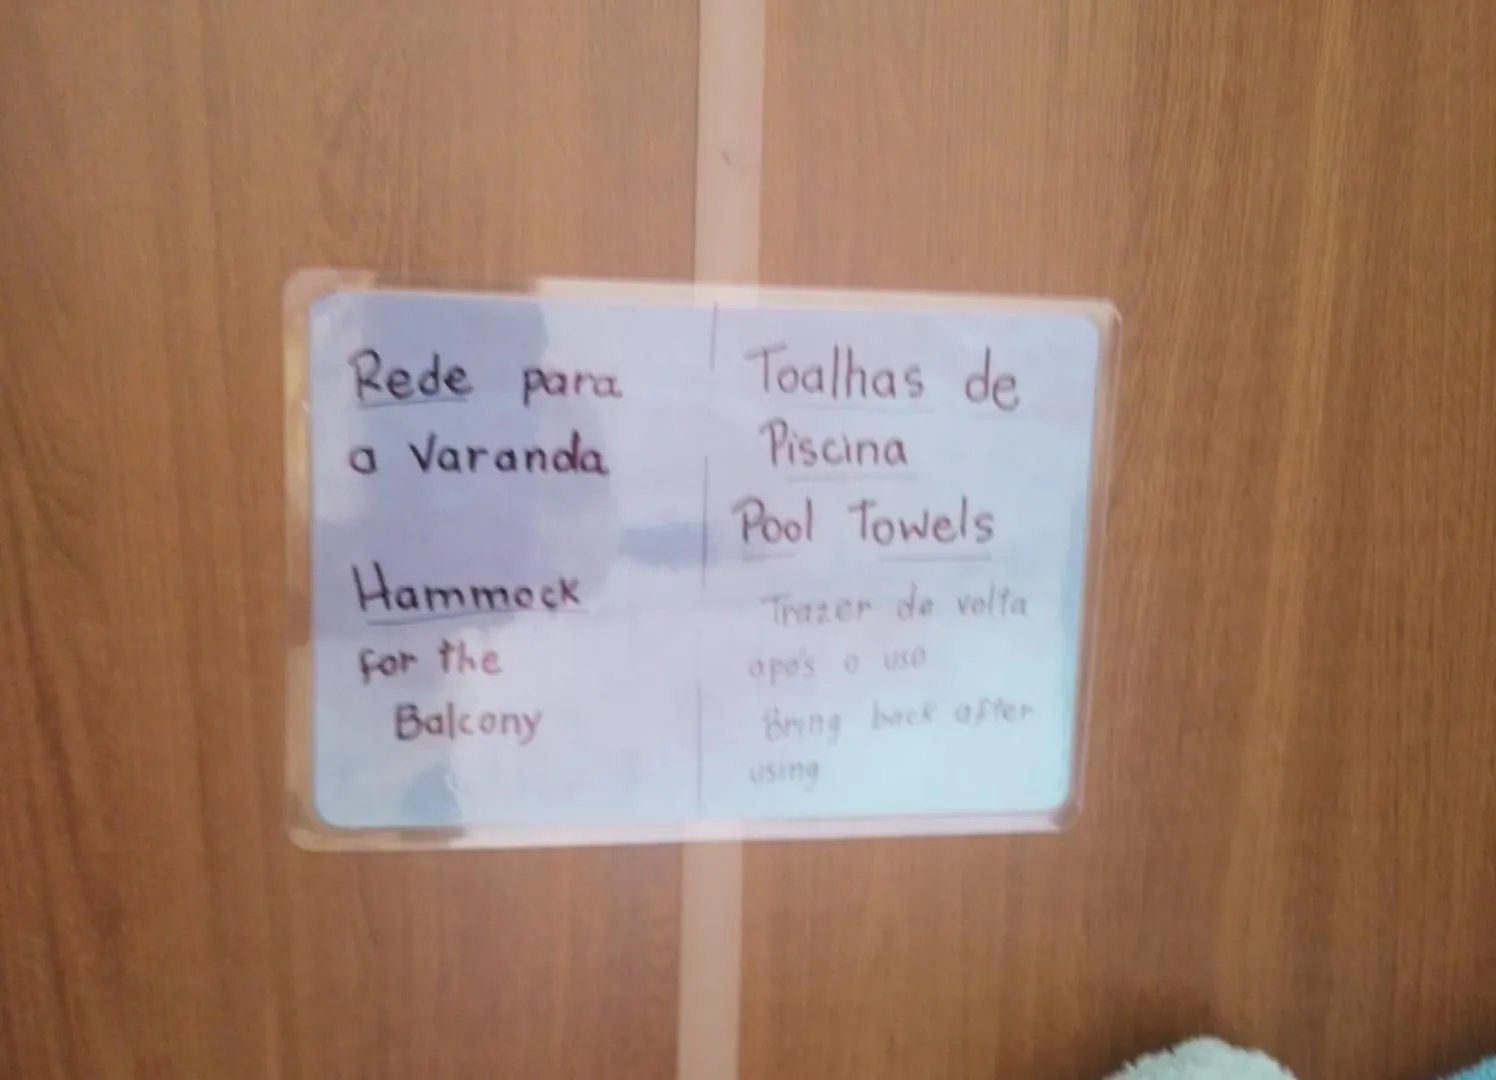 Rede para
a Varanda
Hammock
for the
Balcony
Toalhas de
Piscina
Pool Towels
Trazer de volta
após o uso
Bring back after
using